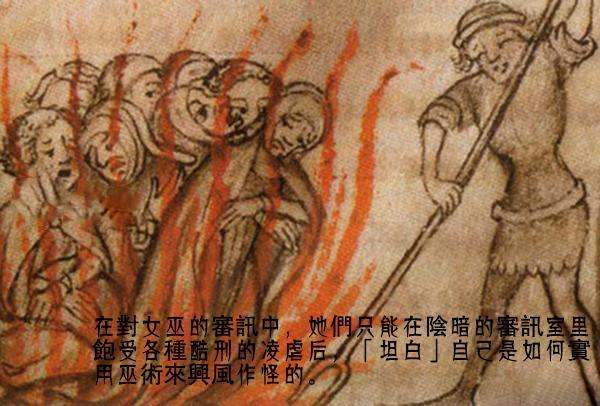 在對女巫的審訊中，她們只能在陰暗的審訊室里
飽受各種酷刑的凌虐后，「坦白」自己是如何實
用巫術來興風作怪的。